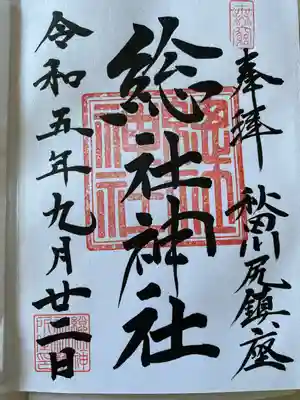 奉拝
秋田川尻鎮座
総社神社
令和五年九月廿二日